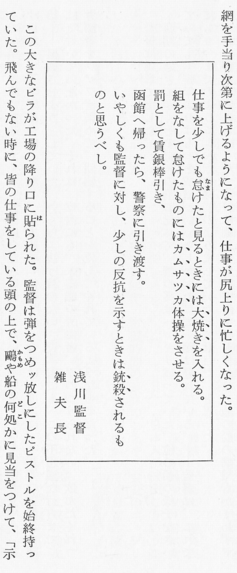 網を手当り次第に上げるようになって、仕事が尻上りに忙しくなった。
仕事を少しでも怠けたと見るときには大焼きを入れる。
組をなして怠けたものにはカムサツカ体操をさせる。
罰として賃銀棒引き、
函館へ帰ったら、警察に引き渡す。
いやしくも監督に対し、少しの反抗を示すときは銃殺されるも
のと思うべし。
浅川監督
雑夫長
この大きなビラが工場の降り口に貼られた。監督は弾をつめッ放しにしたピストルを始終持っ
ていた。飛んでもない時に、皆の仕事をしている頭の上で、鷗や船の何処かに見当をつけて、「示